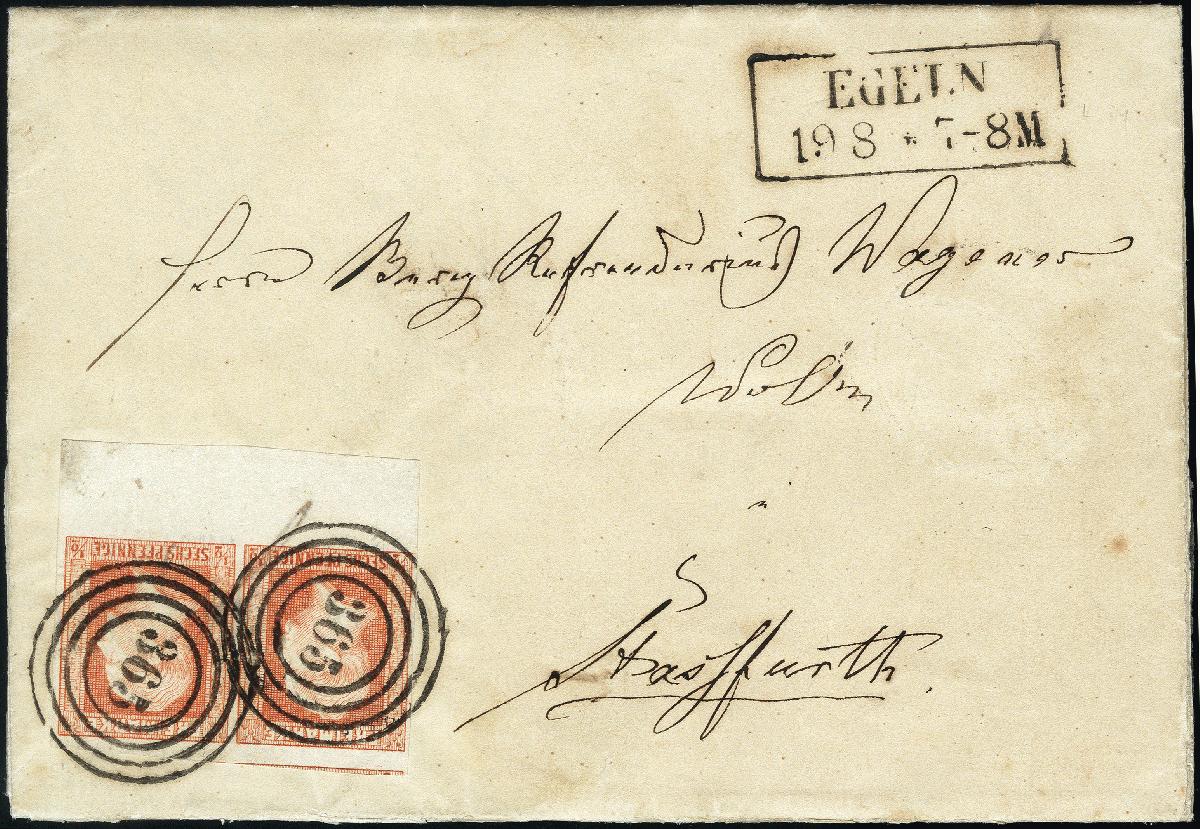 EGELN
19 8 * 7-8M
Herrn Berg Referendarius Wagener
Wohlg.
in
Stassfurth.
SECHS PFENNIGE
SECHS PFENNIGE
365
365